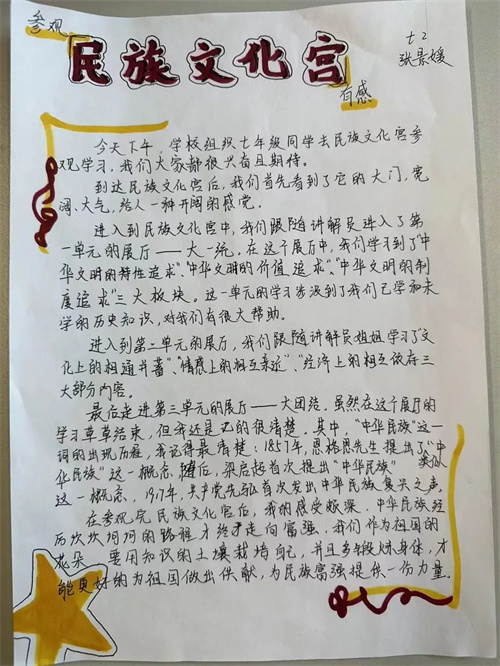 参观
民族文化宫
七2
张景媛
有感
今天下午,学校组织七年级同学去民族文化宫参
观学习,我们大家都很兴奋且期待。
到达民族文化宫后,我们首先看到了它的大门,宽
阔、大气,给人一种开阔的感觉。
进入到民族文化宫中,我们跟随讲解员进入了第
一单元的展厅——大一统,在这个展厅中,我们学习到了“中
华文明的特性追求”、“中华文明的价值追求”、“中华文明的制
度追求”三大板块。这一单元的学习涉及到了我们已学和未
学的历史知识,对我们有很大帮助。
进入到第二单元的展厅,我们跟随讲解员姐姐学习了“文
化上的相通并蓄”、“情感上的相互亲近”、“经济上的相互依存三
大部分内容。
最后走进第三单元的展厅——大团结。虽然在这个展厅的
学习草草结束,但我还是记的很清楚。其中,“中华民族”这一
词的出现历程,我记得最清楚:1857年,恩格思先生提出了“中
华民族”这一概念,随后,梁启超首次提出“中华民族”类似
这一概念,1917年,共产党先驱首次发出中华民族复兴之声。
在参观完民族文化宫后,我的感受颇深,中华民族经
历坎坎坷坷的路程才终于走向富强,我们作为祖国的
花朵 要用知识的土壤栽培自己,并且多锻炼身体,才
能更好的为祖国做出供献,为民族富强提供一份力量。